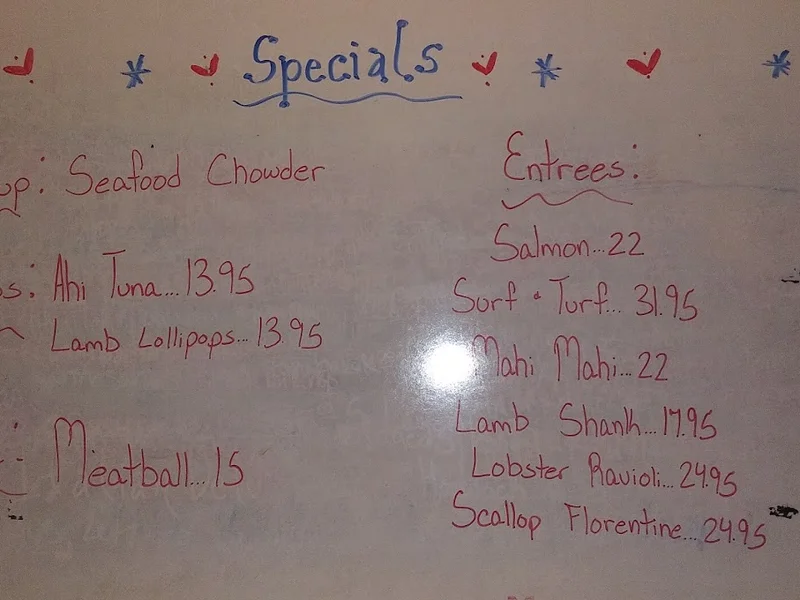 Specials
Seafood Chowder
Ahi Tuna... 13.95
Lamb Lollipops... 13.95
Meatball... 15
Entrees:
Salmon... 22
Surf • Turf... 31.95
Mahi Mahi... 22
Lamb Shank... 17.95
Lobster Ravioli... 24.95
Scallop Florentine... 24.95